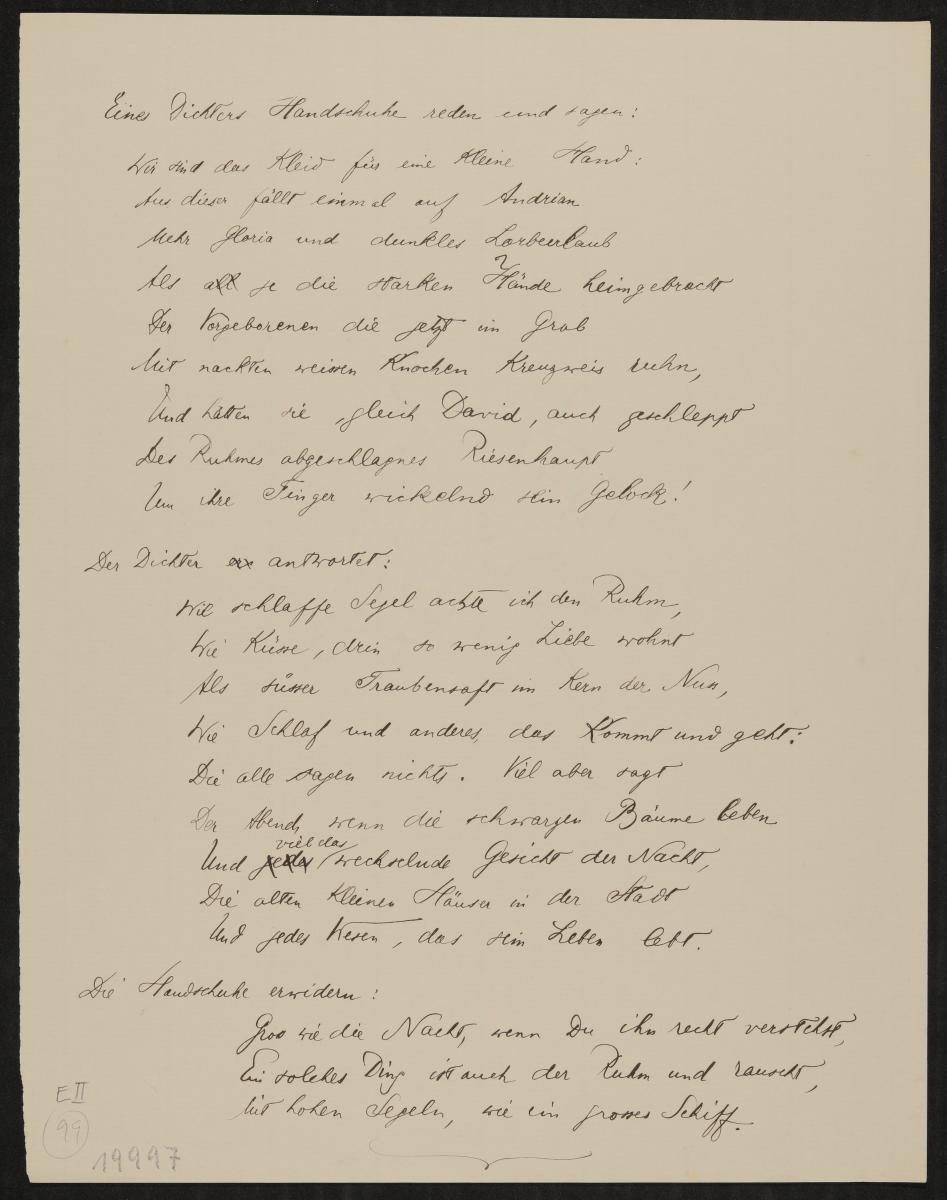 Eines Dichters Handschuhe reden und sagen:
Wir sind das Kleid für eine kleine Hand:
Aus dieser fällt einmal auf Andrian
Mehr Gloria und dunkles Lorbeerlaub
Als all je die starken Hände heimgebracht
Der Vorgeborenen die jetzt im Grab
Mit nackten weissen Knochen Kreuzweis ruhn,
Und hätten sie, gleich David, auch geschleppt
Des Ruhmes abgeschlagnes Riesenhaupt
Um ihre Finger wickelnd sein Gelock!
Der Dichter antwortet:
Wie schlaffe Segel achte ich den Ruhm,
Wie Küsse, drin so wenig Liebe wohnt
Als süsser Traubensaft im Kern der Nuss,
Wie Schlaf und anderes, das Kommt und geht:
Die alle sagen nichts. Viel aber sagt
Der Abend, wenn die schwarzen Bäume leben
viel das
Und jedes wechselnde Gesicht der Nacht,
Die alten kleinen Häuser in der Stadt
Und jedes Wesen, das sein Leben lebt.
Die Handschuhe erwidern:
Gross wie die Nacht, wenn Du ihn recht verstehst,
Ein solches Ding ist auch der Ruhm und rauscht,
Mit hohen Segeln, wie ein grosses Schiff.
E II
99
19997